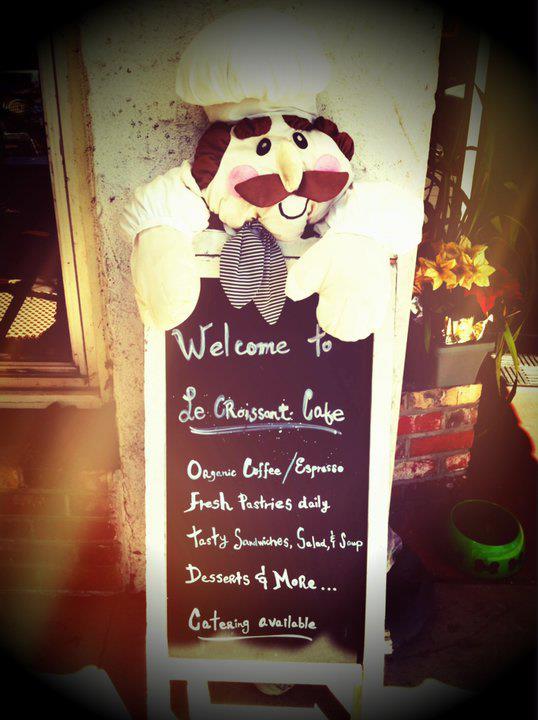 Welcome to
Le CRoissant Cafe
Organic Coffee/Espresso
Fresh Pastries daily
Tasty Sandwiches, Salad, & Soup
Desserts & More...
Catering available